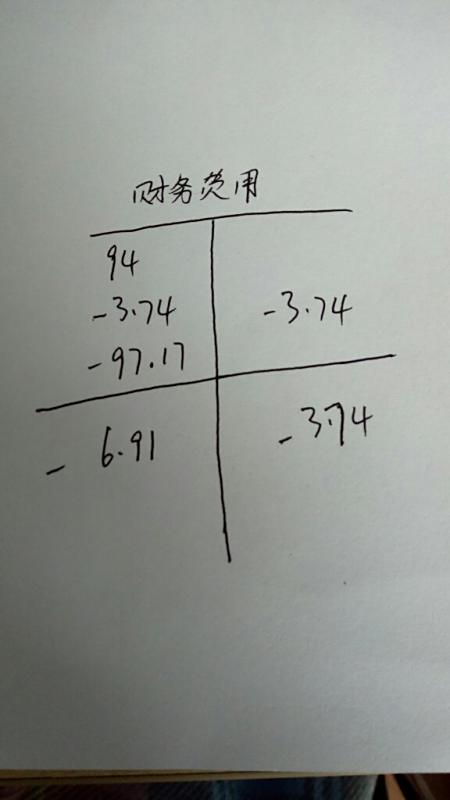 财务费用
94
-3.74 -3.74
-97.17
- 6.91 -3.74